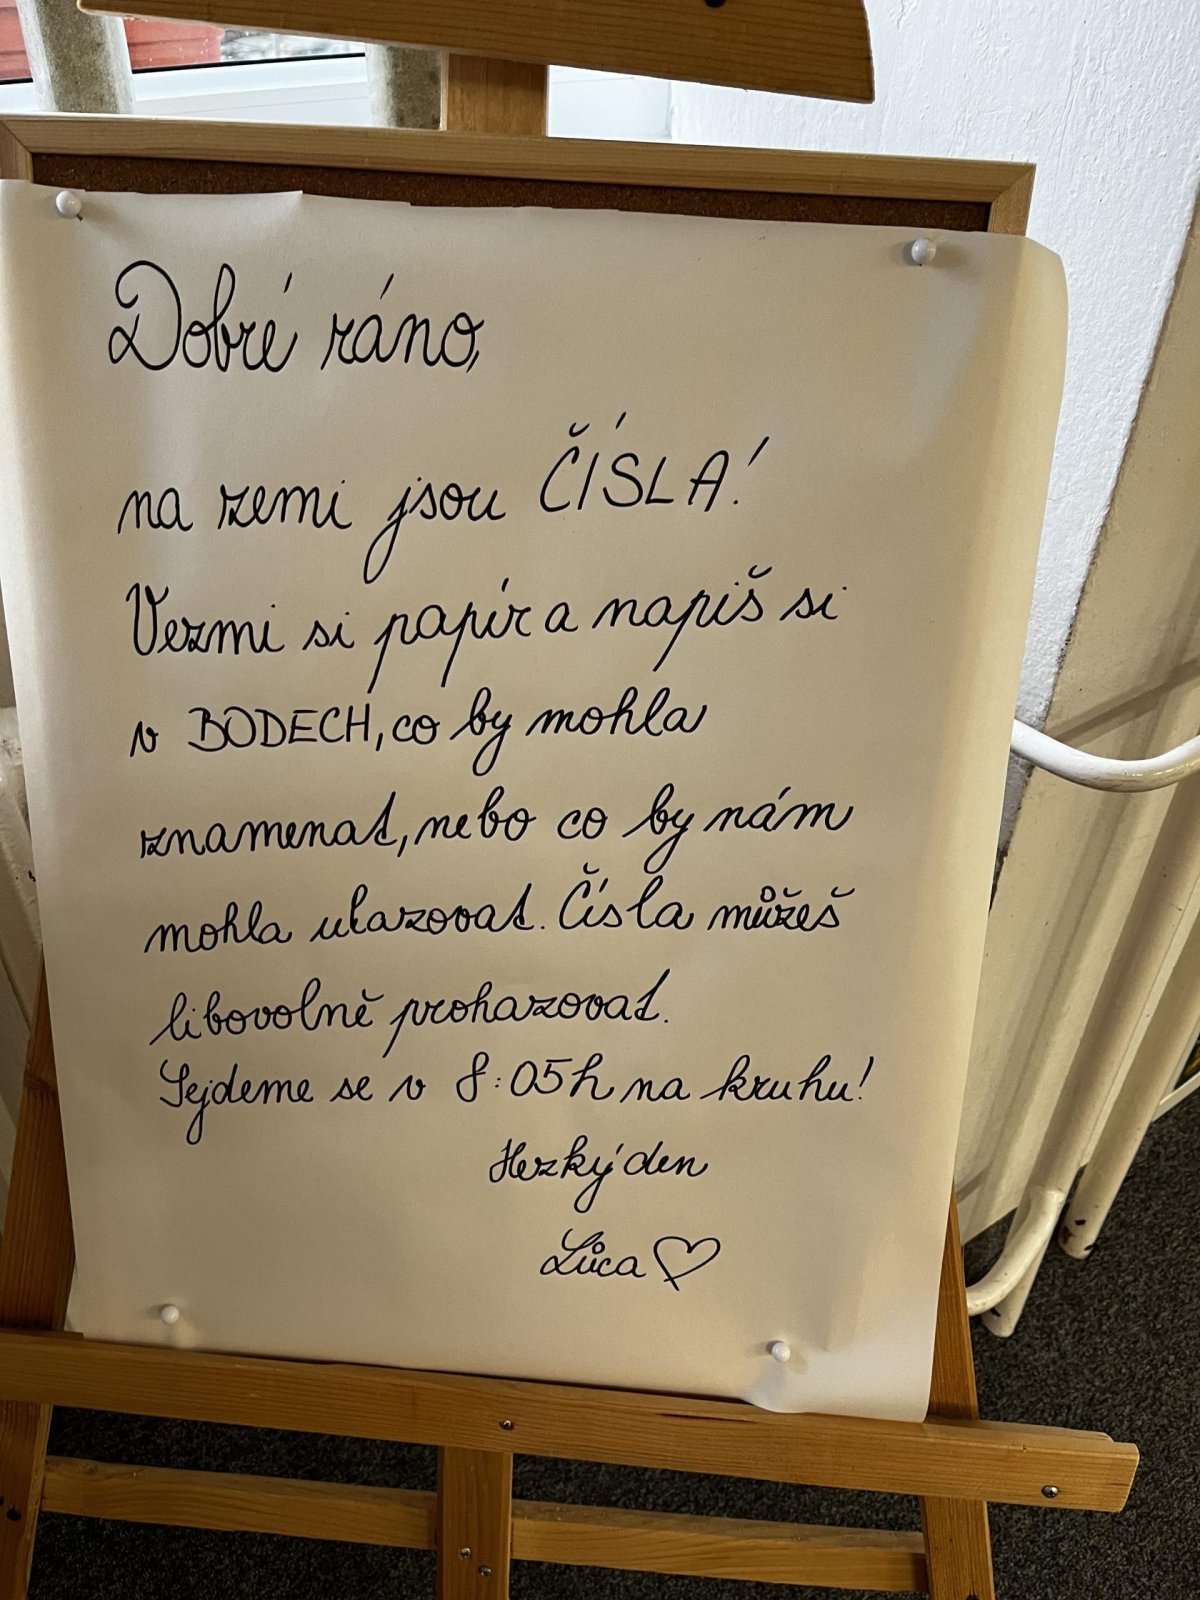 Dobré ráno,
na zemi jsou ČÍSLA!
Vezmi si papír a napiš si
v BODECH, co by mohla
znamenat, nebo co by nám
mohla ukazovat. Čísla můžeš
libovolně prohazovat.
Sejdeme se v 8:05h na kruhu!
Hezký den
Lůca ♡